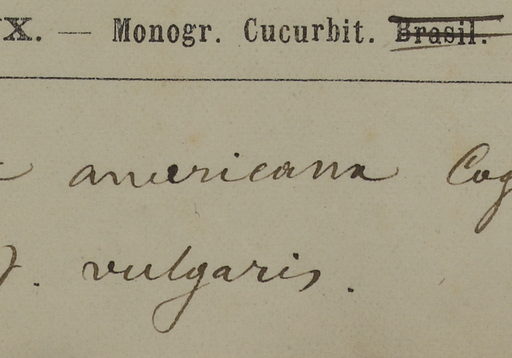 X. — Monogr. Cucurbit. Brasil.
americana Cog
. vulgaris.